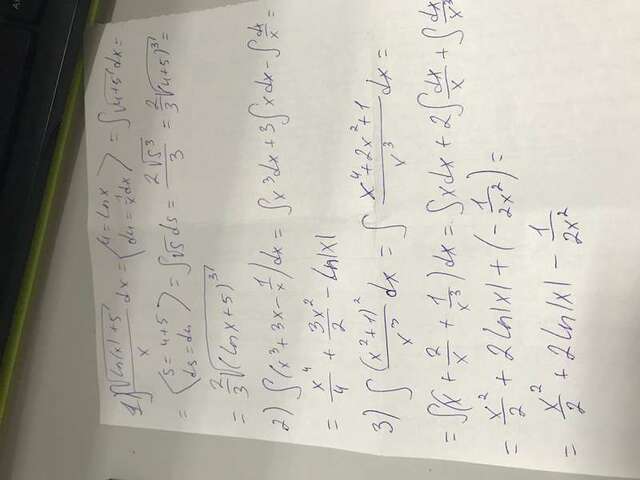 1) ∫ √(ln(x)+5) / x dx = ⟨ u = lnx ; du = 1/x dx ⟩ = ∫ √(u+5) dx =
= ⟨ s = u+5 ; ds = du ⟩ = ∫ √s ds = 2√s³ / 3 = 2/3 √(u+5)³ =
= 2/3 √(lnx+5)³
2) ∫ (x³ + 3x - 1/x) dx = ∫ x³ dx + 3 ∫ x dx - ∫ dx/x =
= x⁴/4 + 3x²/2 - ln|x|
3) ∫ (x²+1)² / x³ dx = ∫ (x⁴+2x²+1) / x³ dx =
= ∫ (x + 2/x + 1/x³) dx = ∫ x dx + 2 ∫ dx/x + ∫ dx/x³
= x²/2 + 2ln|x| + (- 1/2x²) =
= x²/2 + 2ln|x| - 1/2x²